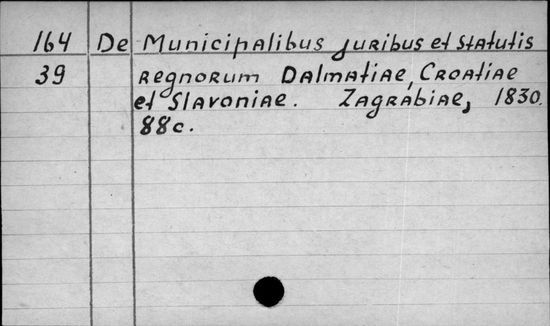 164 De Municipalibus juribus et statutis
39 regnorum Dalmatiae, Croatiae
et Slavoniae. Zagrabiae, 1830.
88c.